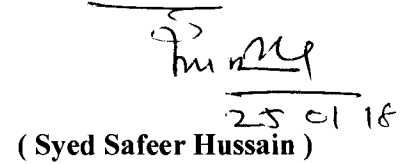 25 01 18
( Syed Safeer Hussain )